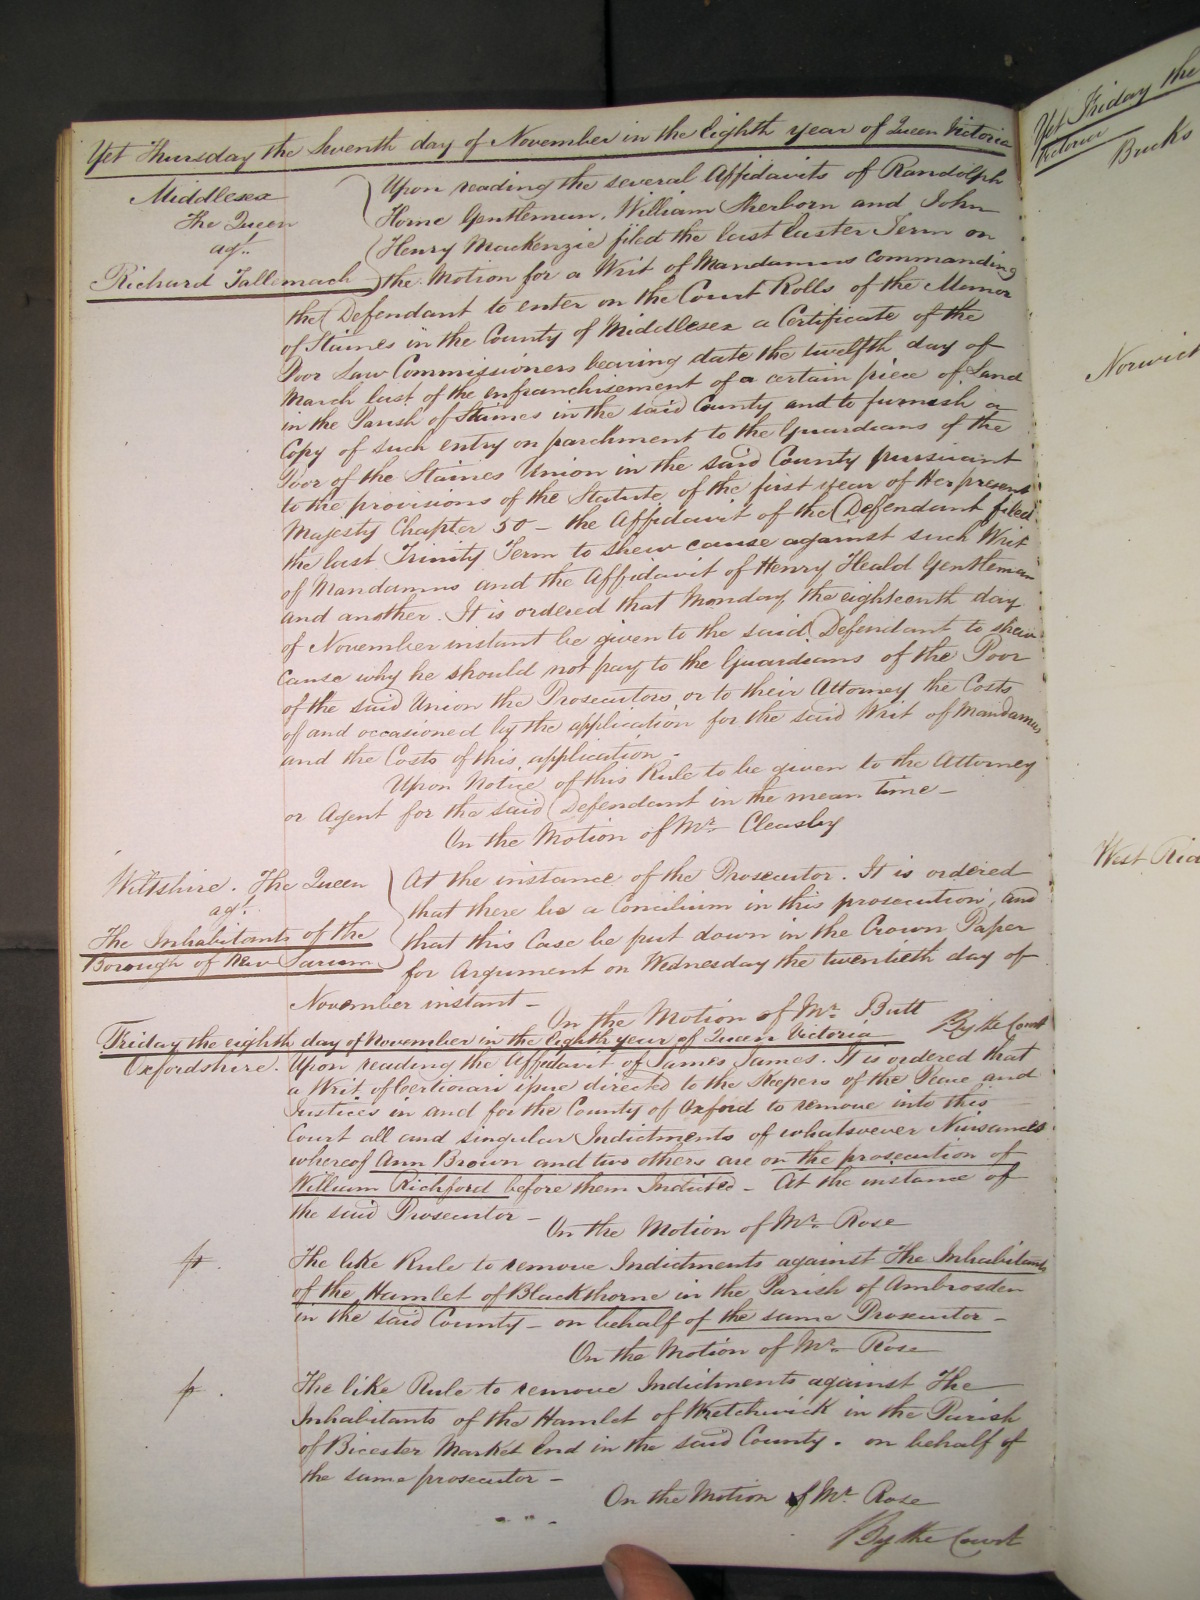 Yet Thursday the Seventh day of November in the Eighth year of Queen Victoria
Middlesex
The Queen
agt.
Richard Tallemach
Upon reading the several Affidavits of Randolph
Horne Gentleman, William Sherborn and John
Henry MacKenzie filed the last Easter Term on
the Motion for a Writ of Mandamus Commanding
the Defendant to enter on the Court Rolls of the Manor
of Staines in the County of Middlesex a Certificate of the
Poor Law Commissioners bearing date the twelfth day of
March last of the enfranchisement of a certain piece of Land
in the Parish of Staines in the said County and to furnish a
Copy of such entry on parchment to the Guardians of the
Poor of the Staines Union in the said County pursuant
to the provisions of the Statute of the first year of Her present
Majesty Chapter 50 - the Affidavit of the Defendant filed
the last Trinity Term to shew cause against such Writ
of Mandamus and the Affidavit of Henry Heald Gentleman
and another. It is ordered that Monday the eighteenth day
of November instant be given to the said Defendant to shew
cause why he should not pay to the Guardians of the Poor
of the said Union the Prosecutors or to their Attorney the Costs
of and occasioned by the application for the said Writ of Mandamus
and the Costs of this application -
Upon Notice of this Rule to be given to the Attorney
or Agent for the said Defendant in the mean time -
On the Motion of Mr. Cleasby
Wiltshire. The Queen
agt.
The Inhabitants of the
Borough of New Sarum
At the instance of the Prosecutor. It is ordered
that there be a Concilium in this prosecution, and
that this Case be put down in the Crown Paper
for Argument on Wednesday the twentieth day of
November instant -
On the Motion of Mr. Butt
By the Court
Friday the eighth day of November in the Eighth year of Queen Victoria
Oxfordshire. Upon reading the Affidavit of James James. It is ordered that
a Writ of Certiorari issue directed to the Keepers of the Peace and
Justices in and for the County of Oxford to remove into this
Court all and singular Indictments of whatsoever Nuisances
whereof Ann Brown and two others are on the prosecution of
William Richford before them Indicted - At the instance of
the said Prosecutor -
On the Motion of Mr. Rose
The like Rule to remove Indictments against The Inhabitants
of the Hamlet of Blackthorne in the Parish of Ambrosden
in the said County - on behalf of the same Prosecutor -
On the Motion of Mr. Rose
The like Rule to remove Indictments against The
Inhabitants of the Hamlet of Wretchwick in the Parish
of Bicester Market End in the said County. on behalf of
the same prosecutor -
On the Motion of Mr. Rose
By the Court
Yet Friday the
Victoria
Bucks
West